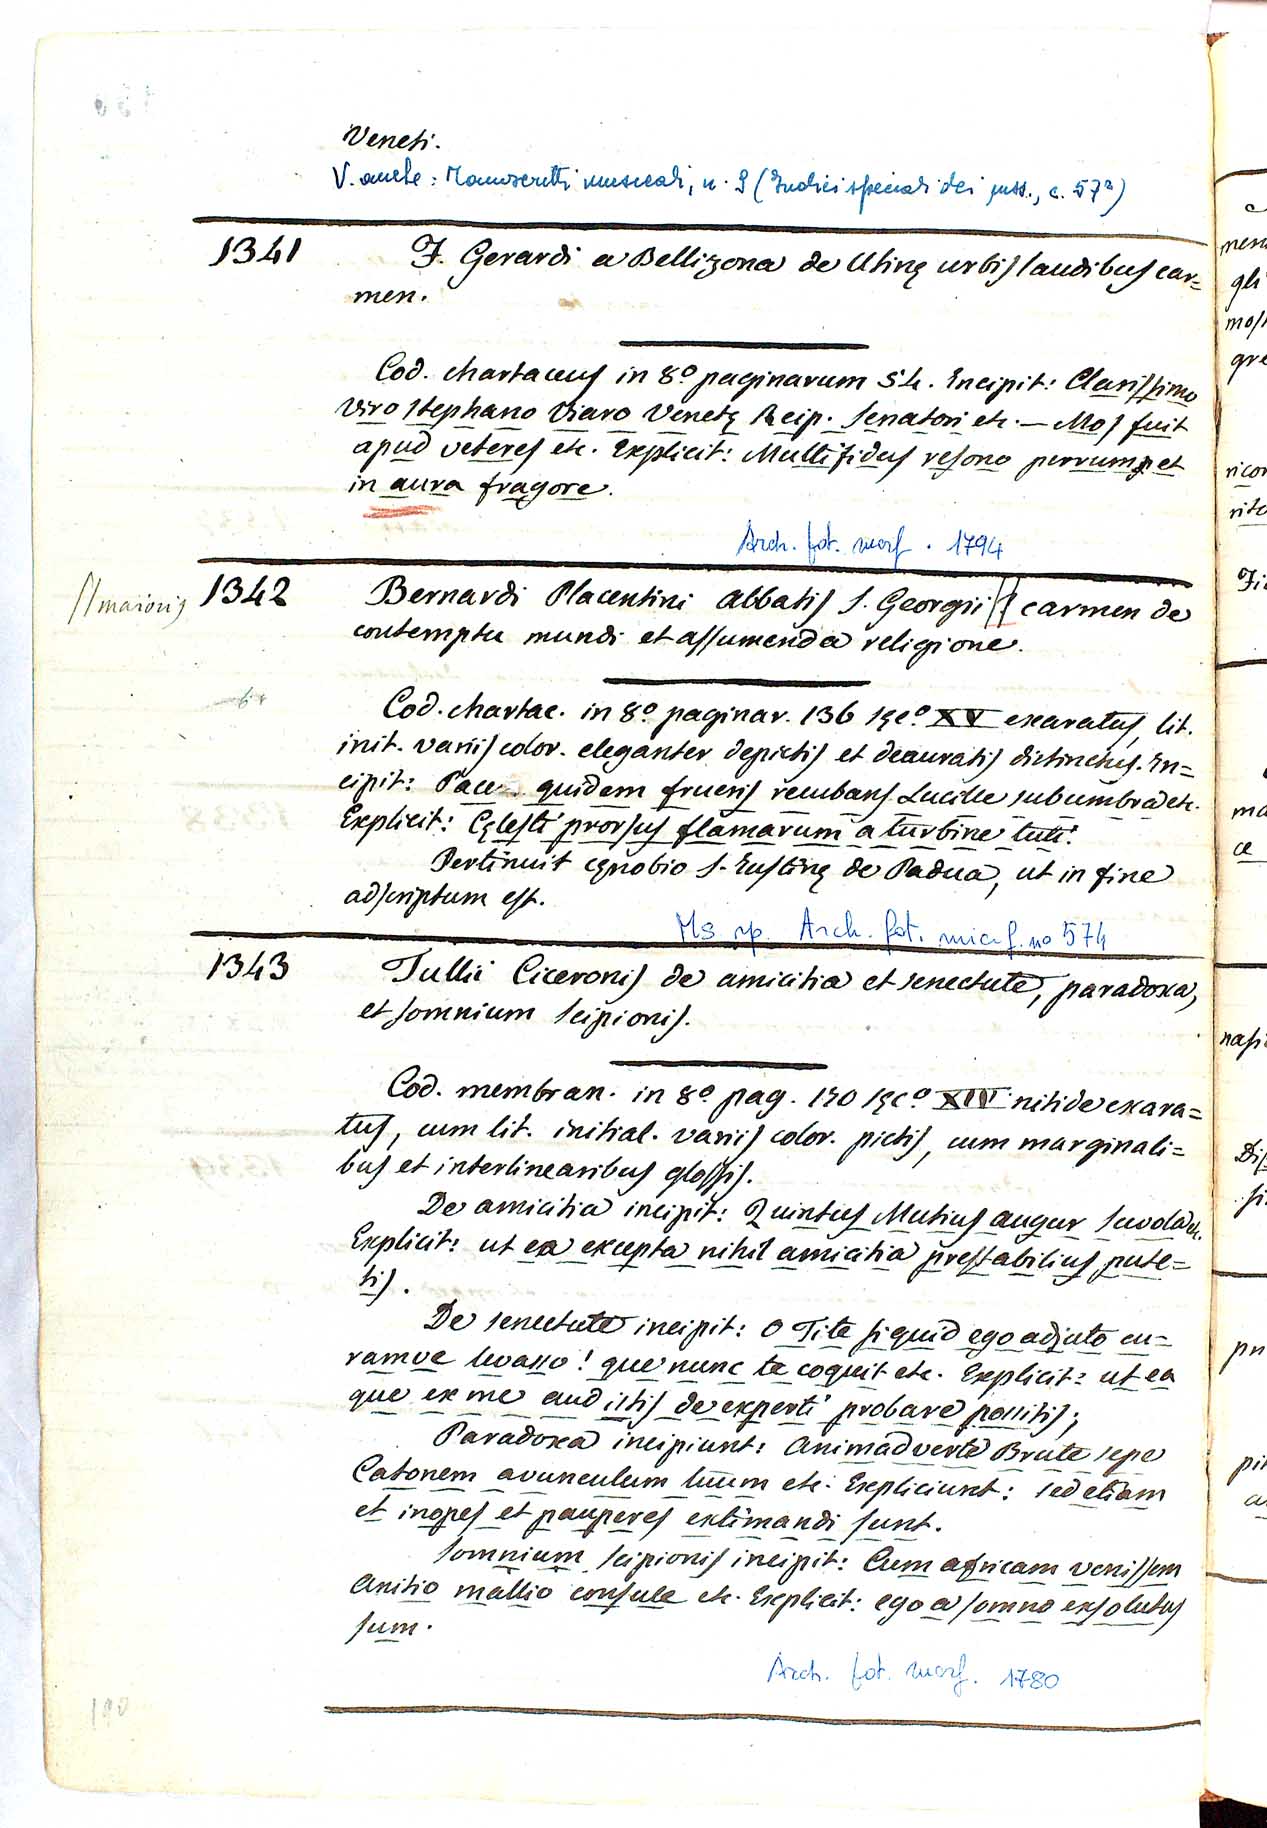 Veneti.
V. anche: Manoscritti musicali, n. 9 (Indici speciali dei mss., c. 57a)
1341 F. Gerardi a Bellizona de Utinę urbis laudibus car=
men.
Cod. chartaceus in 8.o paginarum 54. Incipit: Clarissimo
viro Stephano Viaro Venetę Reip. Senatori etc. — Mos fuit
apud veteres etc. Explicit: Multifidus resono perrumpet
in aura fragore.
Arch. fot. microf. 1794
1342 Bernardi Placentini Abbatis S. Georgii // carmen de
// maioris
contemptu mundi et assumenda religione.
Cod. chartac. in 8.o paginar. 136 sęc.o XV exaratus, lit.
init. variis color. eleganter depictis et deauratis distinctus. In=
cipit: Pace quidem frueris recubans Lucille sub umbra etc.
Explicit: Cęlesti prorsus flamarum a turbine tuti.
Pertinuit cęnobio S. Iustinę de Padua, ut in fine
adscriptum est.
Ms sp. Arch. fot. microf. no 574
1343 Tullii Ciceronis de amicitia et senectute, paradoxa,
et somnium Scipionis.
Cod. membran. in 8.o pag. 170 sęc.o XIV nitide exara=
tus, cum lit. initial. variis color. pictis, cum marginali=
bus et interlinearibus glossis.
De amicitia incipit: Quintus Mutius augur Scevola etc.
Explicit: ut ea excepta nihil amicitia prestabilius pute=
tis.
De senectute incipit: O Tite siquid ego adjuto cu=
ramve levasso! que nunc te coquit etc. Explicit: ut ea
que ex me audistis de experti probare possitis;
Paradoxa incipiunt: Animadverte Brute sepe
Catonem avunculum tuum etc. Expliciunt: sed etiam
et inopes et pauperes extimandi sunt.
Somnium Scipionis incipit: Cum africam venissem
Anitio mallio consule etc. Explicit: ego a somno exsolutus
sum.
Arch. fot. microf. 1780
190